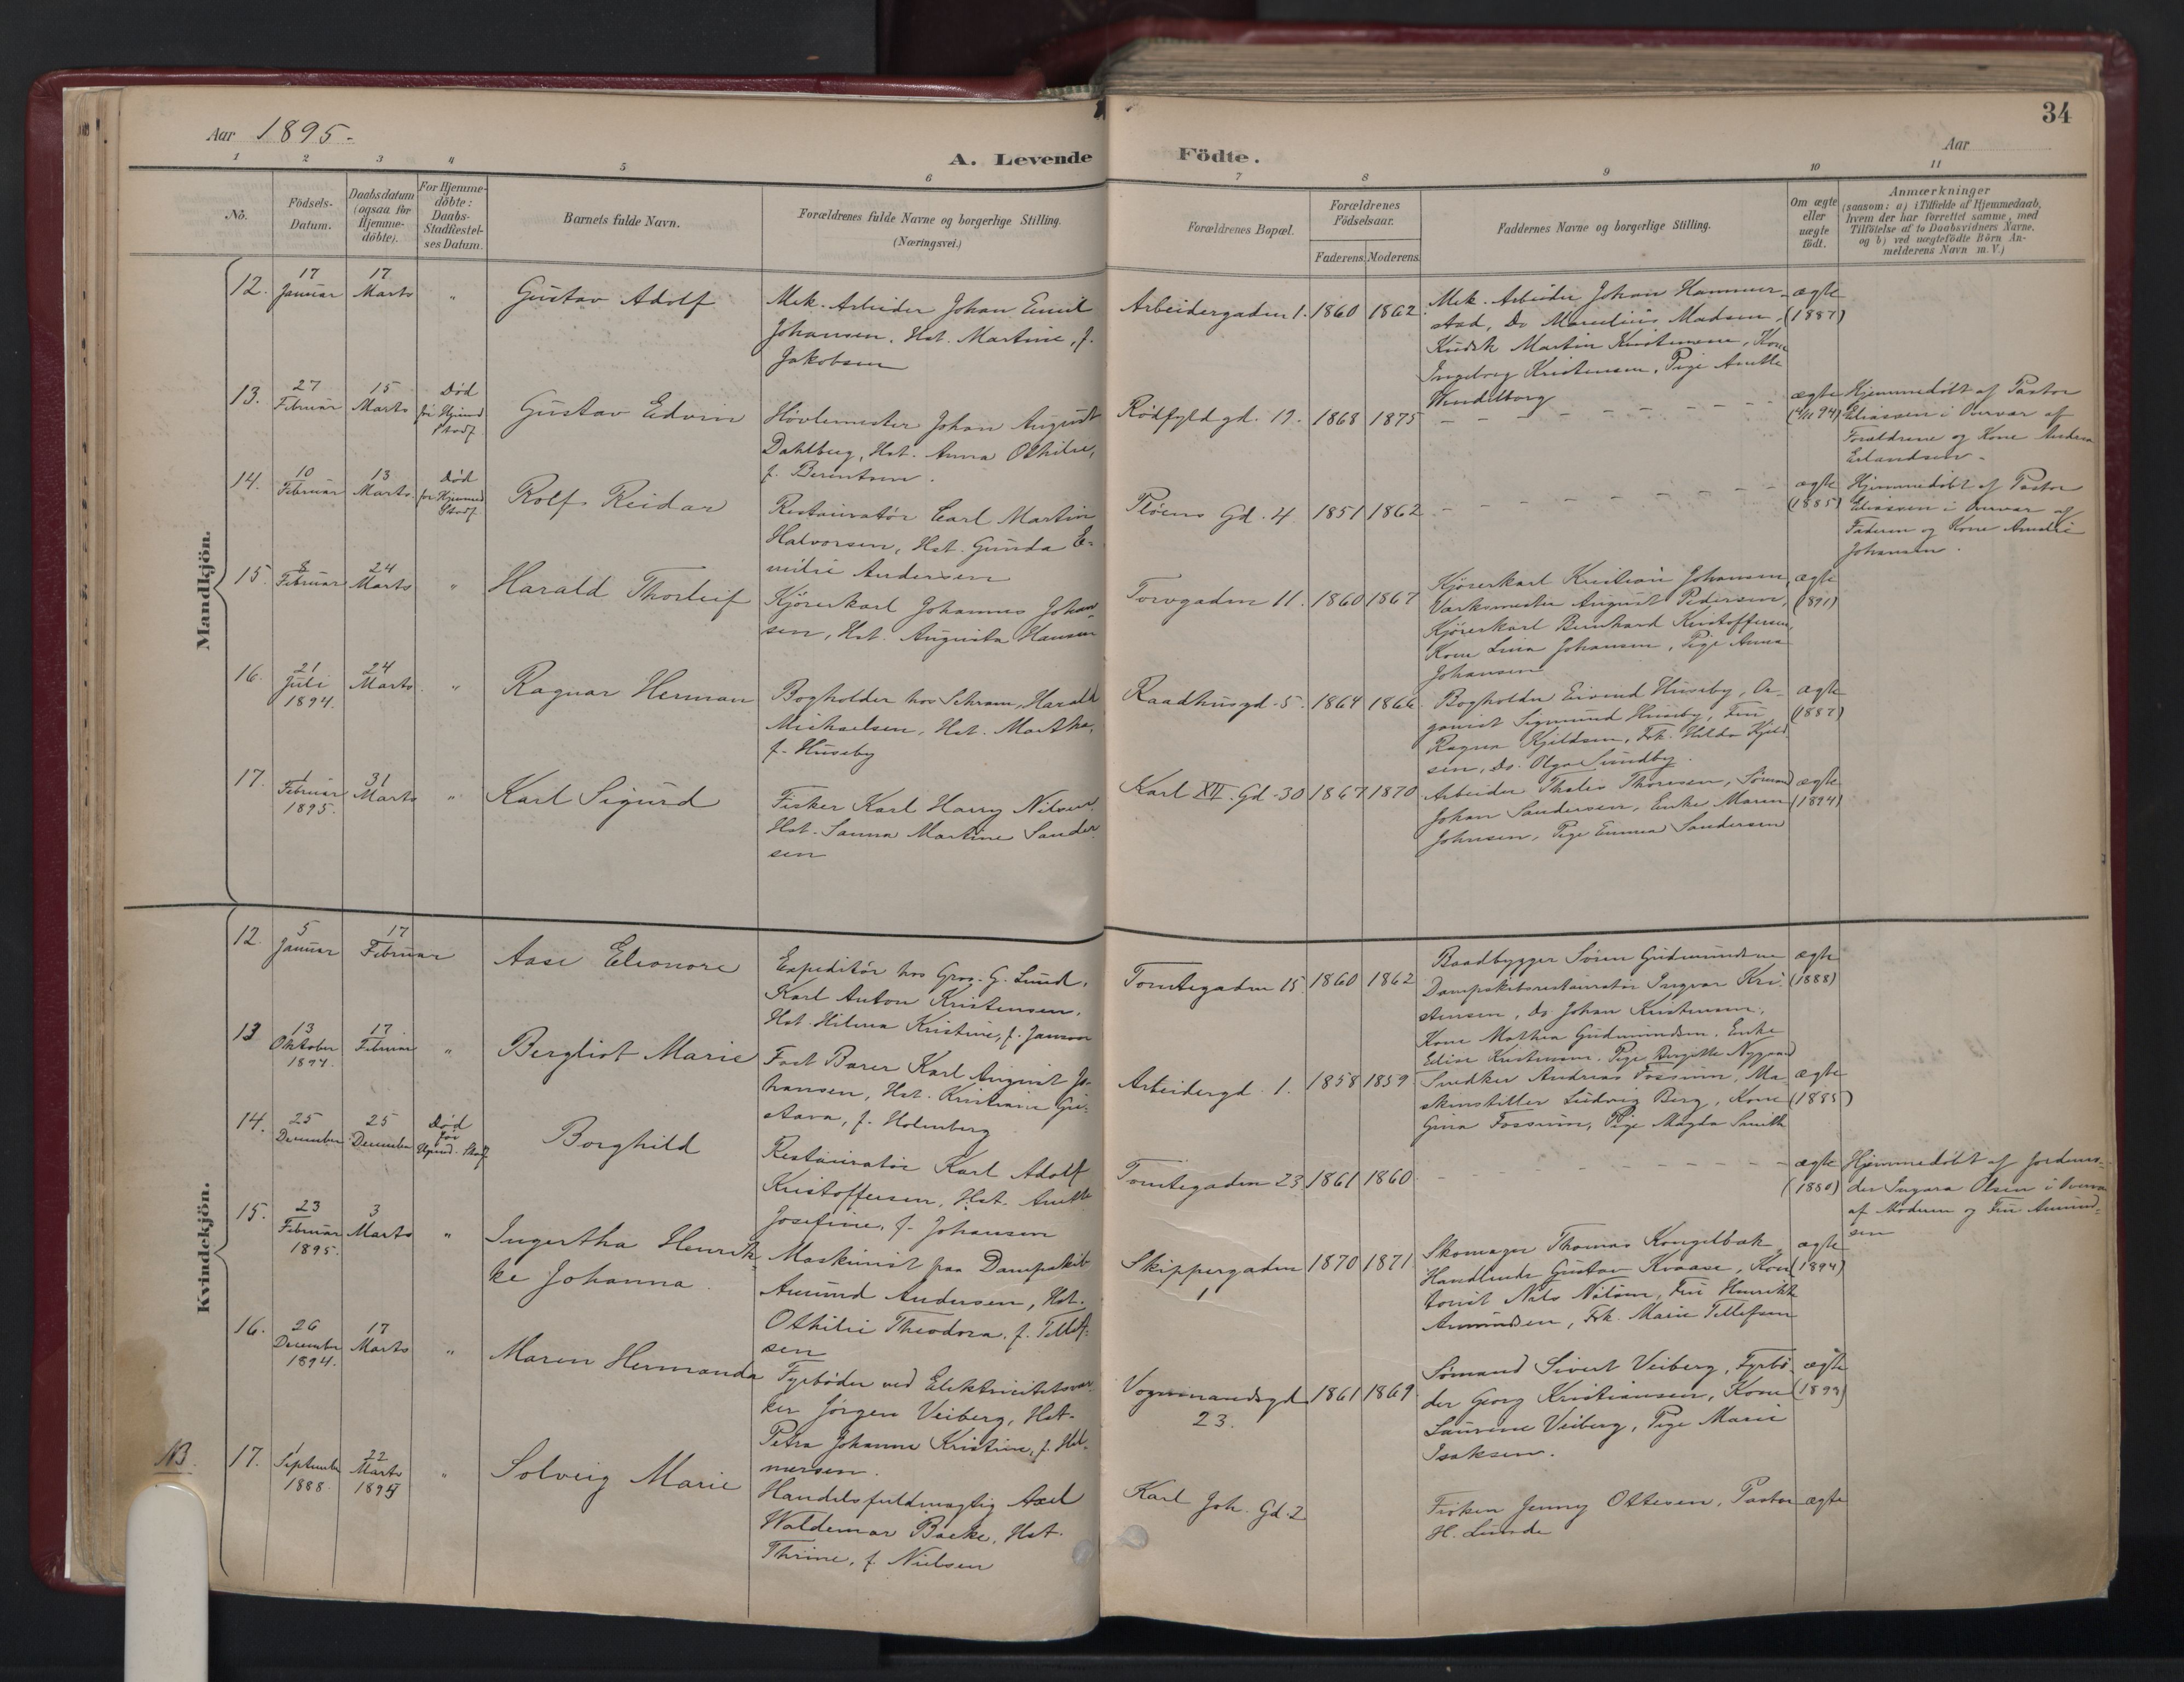 34
Aar 1895.
Aar
A. Levende Födte.
1 2 3 4 5 6 7 8 9 10 11
Nö.
Födsels-
Datum.
Daabsdatum
(ogsaa for
Hjemme-
döbte).
For Hjemme-
döbte:
Daabs-
Stadfæstel-
ses Datum.
Barnets fulde Navn.
Forældrenes fulde Navne og borgerlige Stilling.
(Næringsvei.)
Forældrenes Bopæl.
Forældrenes
Födselsaar.
Faderens. Moderens.
Faddernes Navne og borgerlige Stilling.
Om ægte
eller
uægte
födt.
Anmærkninger
(saasom: a) i Tilfælde af Hjemmedaab,
hvem der har forrettet samme, med
Tilföielse af to Daabsvidners Navne,
og b) ved uægtefödte Börn An-
melderens Navn m. V.)
Mandkjön.
12.
17
Januar
17
Marts
"
Gustav Adolf
Mek. Arbeider Johan Emil
Johansen, Hst. Martine, f.
Jakobsen
Arbeidergaden 1.
1860
1862
Mek. Arbeider Johan Hammer-
stad, Do Marelius Madsen,
Kudsk Martin Kristensen, Kone
Ingeborg Kristensen, Pige Anette
Wendelborg
ægte
(1887)
13.
27
Februar
15
Marts
Død
før Hjemmed
Stadf
Gustav Edvin
Høvlemester Johan August
Dahlberg, Hst. Anna Othilie,
f. Berntsen.
Rødfyldgd. 17.
1868
1875
ægte
Hjemmedøbt af Pastor
Eliassen i Overvær af
Forældrene og Kone Andrea
Erlandsen.
14.
10
Februar
13
Marts
Død
før Hjemmed
Stadf
Rolf Reidar
Restauratør Carl Martin
Halvorsen, Hst. Gunda E-
milie Andersen
Pløens Gd. 4
1851
1862
ægte
(1885)
Hjemmedøbt af Pastor
Eliassen i Overvær af
Faderen og Kone Amalie
Johansen.
15.
8
Februar
24
Marts
"
Harald Thorleif
Kjørerkarl Johannes Johan-
sen, Hst. Augusta Hansen
Torvgaden 11.
1860
1867
Kjørerkarl Kristian Johansen
Værksmester August Pedersen,
Kjørerkarl Bernhard Kristoffersen,
Kone Lina Johansen, Pige Anna
Johansen
ægte
(1891)
16.
21
Juli
1894.
24
Marts
"
Ragnar Herman
Bogholder hos Schram, Harald
Michaelsen, Hst. Marthe,
f. Huseby
Raadhusgd. 5.
1864
1866
Bogholder Eivind Huseby, Or-
ganist Sigmund Huseby, Fru
Ragna Kjeldsen, Frk. Hilda Kjeld-
sen, Do. Olga Sundby.
ægte
(1887)
17.
1
Februar
1895.
31
Marts
"
Karl Sigurd
Fisker Karl Harry Nilsen,
Hst. Sanna Martine Sander
sen
Karl XII. Gd. 30
1867
1870
Arbeider Thales Thoresen, Sømand
Johan Sandersen, Enke Maren
Johnsen, Pige Emma Sandersen
ægte
(1894)
Kvindekjön.
12.
5
Januar
17
Februar
Aase Eleonore
Expeditør hos Gros. G. Lund,
Karl Anton Kristensen,
Hst. Hilma Kristine, f. Jansson
Tomtegaden 15
1860
1862
Baadbygger Søren Gudmundsen
Dampskibsrestauratør Ingvar Kri-
stensen, Do Johan Kristensen,
Kone Mathea Gudmundsen, Enke
Elise Kristensen, Pige Birgitte Nygaard
ægte
(1888)
13
13
Oktober
1894.
17
Februar
"
Bergliot Marie
Fast Bærer Karl August Jo-
hansen, Hst. Kristiane Gu-
stava, f. Holmberg
Arbeidergd. 1.
1858
1859
Snedker Andreas Fossum, Ma-
skinstiller Ludvig Berg, Kone
Gina Fossum, Pige Magda Smith
ægte
(1885)
14.
25
December
25
December
Død
før
Hjemd. Stadf
Borghild
Restauratør Karl Adolf
Kristoffersen, Hst. Anette
Josefine, f. Johansen
Tomtegaden 23
1861
1860
ægte
(1880)
Hjemmedøbt af Jordemo-
der Ingara Olsen i Overvær
af Moderen og Fru Amund-
sen
15.
23
Februar
1895.
3
Marts
"
Ingertha Henrik-
ke Johanna
Maskinist paa Dampskib
Amund Andersen, Hst.
Othilie Theodora, f. Tellef-
sen
Skippergaden
1
1870
1871
Skomager Thomas Kongelbak,
Handlende Gustav Kvaase, Kon-
torist Nils Nilsen, Fru Henrikke
Amundsen, Frk. Marie Tellefsen
ægte
(1894)
16.
26
December
1894.
17
Marts
"
Maren Hermanda
Fyrbøder ved Elektricitetsvær-
ket Jørgen Veiberg, Hst.
Petra Johanne Kristine, f. Hel-
mersen.
Vognmandsgd
23.
1861
1869
Sømand Sivert Veiberg, Fyrbø-
der Georg Kristiansen, Kone
Laurine Veiberg, Pige Marie
Isaksen.
ægte
NB.
17.
1
September
1888
22
Marts
1895
"
Solveig Marie
Handelsfuldmægtig Axel
Waldemar Backe, Hst.
Thrine, f. Nielsen
Karl Joh. Gd. 2
Frøken Jenny Ottesen, Pastor
H. Lunde
ægte